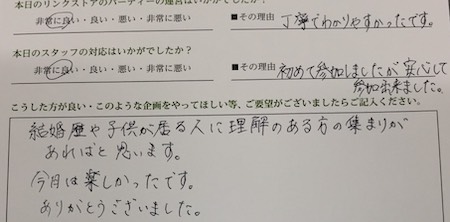 本日のリンクストアのパーティーの運営はいかがでしたか?
非常に良い・良い・悪い・非常に悪い
■その理由 丁寧でわかりやすかったです。
本日のスタッフの対応はいかがでしたか?
非常に良い・良い・悪い・非常に悪い
■その理由 初めて参加しましたが安心して
参加出来ました。
こうした方が良い・このような企画をやってほしい等、ご要望がございましたらご記入ください。
結婚歴や子供が居る人に理解のある方の集まりが
あればと思います。
今日は楽しかったです。
ありがとうございました。